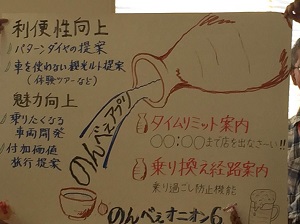 利便性向上
・パターンダイヤの提案
・車を使わない観光ルート提案
(体験ツアーなど)
魅力向上
・乗りたくなる
車両開発
・付加価値
旅行提案
のんべえアプリ
タイムリミット案内
○○:○○まで店を出なさーい!!
乗り換え経路案内
乗り過ごし防止機能
のんべえオニオン6